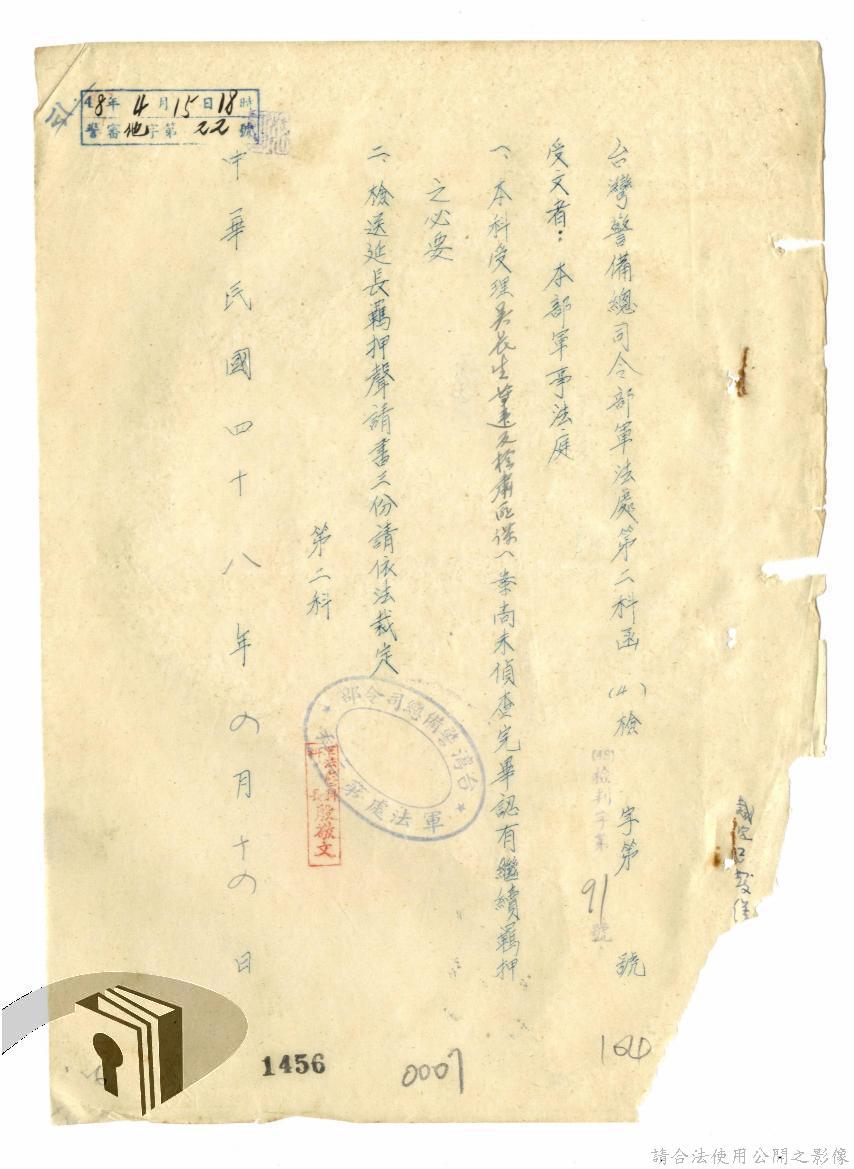 台灣警備總司令部軍法處第二科函 (4) 檢 字第 號
(48)檢利字第 91 號
受文者：本部軍事法庭
一、本科受理吳長生 案尚未偵查完畢認有繼續羈押
之必要
二、檢送延長羈押聲請書三份請依法裁定
第二科
台灣警備總司令部
軍法處
殷敬文
中華民國四十八年四月十四日
48年4月15日18時
警審他字第22號
164
0007
1456
請合法使用公開之影像